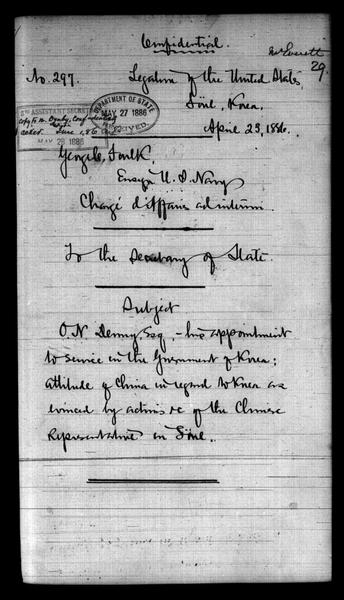 Confidential.
Mr Everett
29.
No. 297.
Legation of the United States,
Söul, Korea,
April 23, 1886.
2ND ASSISTANT SECRETARY
Copy to Mr. Denby, Confidential
June 1, 86
MAY 28 1886
DEPARTMENT OF STATE
MAY 27 1886
RECEIVED
George C. Foulk,
Ensign U. S. Navy
Chargé d'Affaires ad interim.
To the Secretary of State.
Subject
O. N. Denny, Esq, - his appointment
to service in the Government of Korea;
attitude of China in regard to Korea as
evinced by actions &c of the Chinese
Representative in Söul..